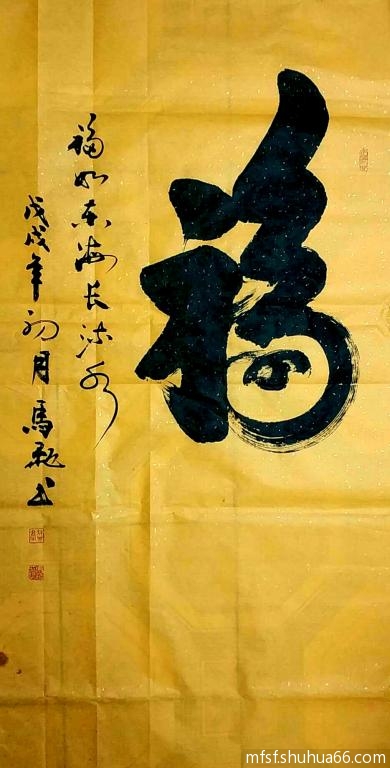 福
福如东海长流水
戊戌年初月
馬飛书
mfsf.shuhua66.com